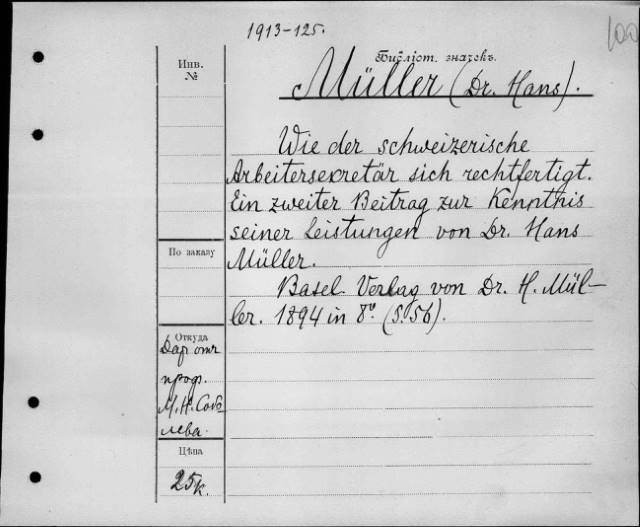 1913-125.
100
Библіот. значекъ.
Инв.
№
Müller (Dr. Hans).
Wie der schweizerische
Arbeitersekretär sich rechtfertigt.
Ein zweiter Beitrag zur Kenntnis
seiner Leistungen von Dr. Hans
Müller.
Basel Verlag von Dr. H. Mül-
ler. 1894 in 8º. (S. 56).
По заказу
Откуда
Дар отъ
проф.
М. Н. Собо
лева.
Цѣна
25 к.